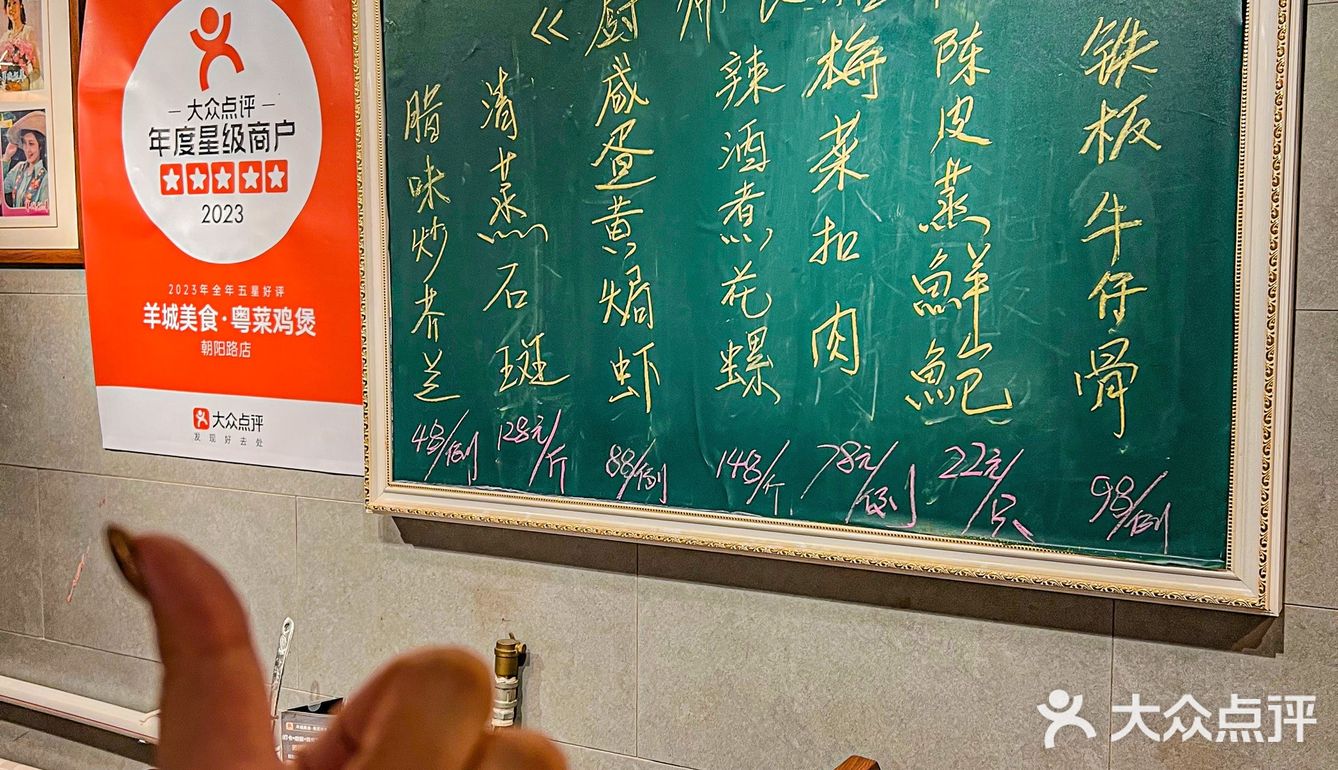 大众点评
年度星级商户
2023
2023年全年五星好评
羊城美食·粤菜鸡煲
朝阳路店
大众点评
发现好去处
《厨师长
铁板牛仔骨
98/例
陈皮蒸鮮鲍
22元/只
梅菜扣肉
78元/例
辣酒煮花螺
148/斤
咸蛋黄焗虾
88/例
清蒸石斑
128元/斤
腊味炒芥兰
48/例
大众点评